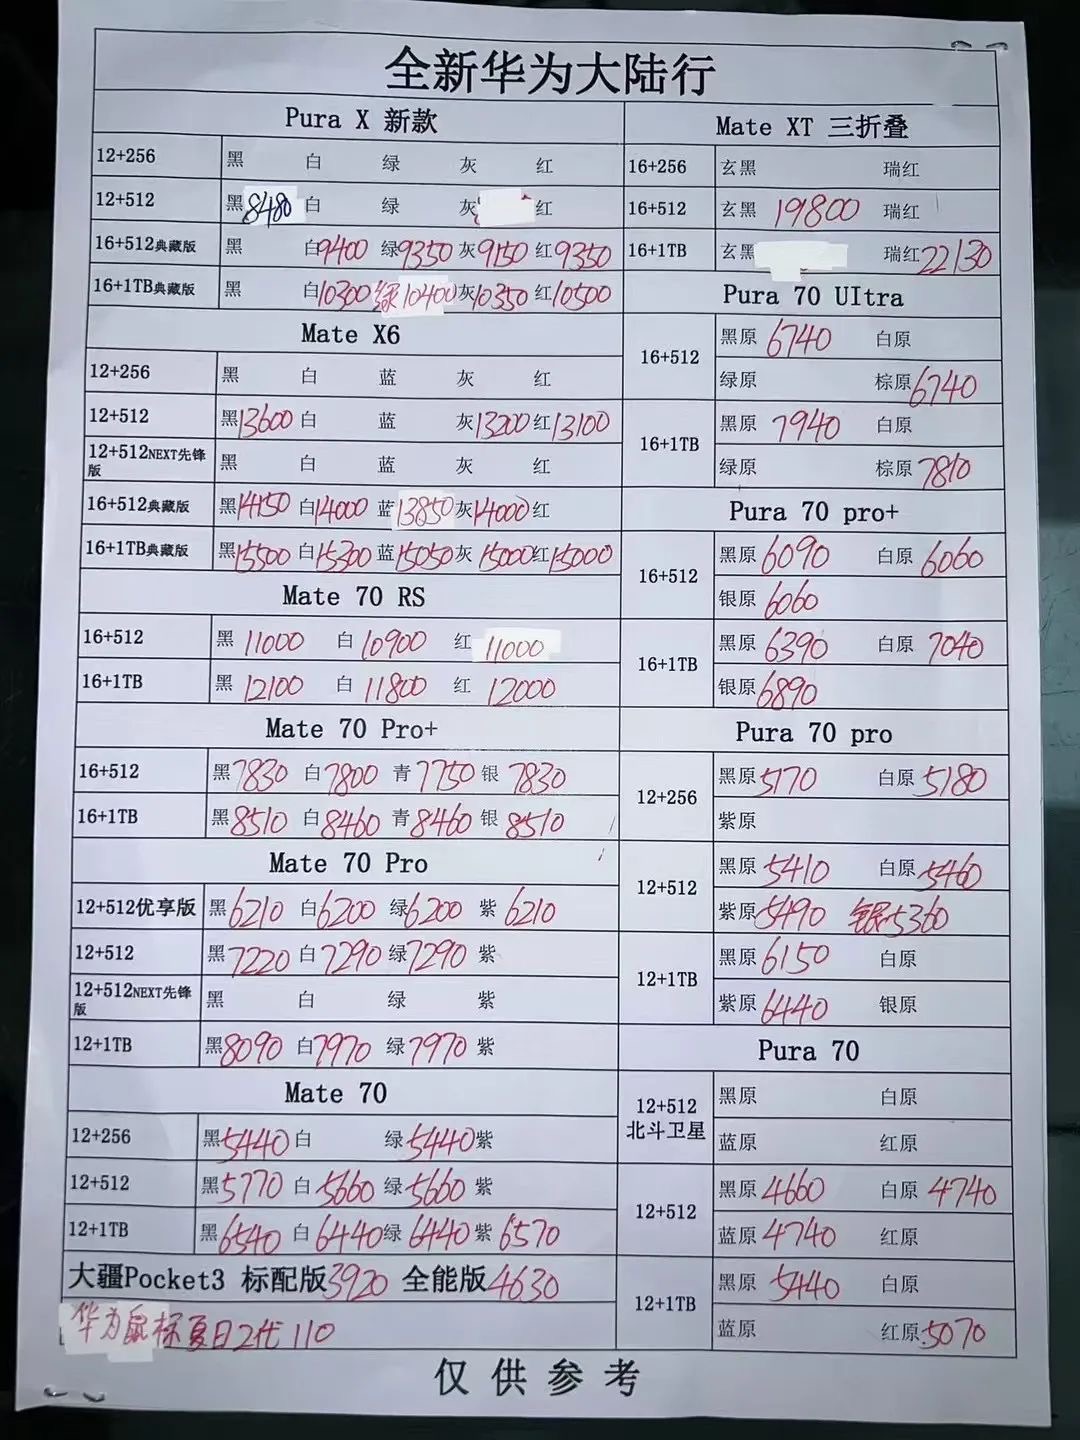 全新华为大陆行
Pura X 新款
12+256 黑 白 绿 灰 红
12+512 黑8480 白 绿 灰 红
16+512典藏版 黑 白9400 绿9350 灰9150 红9350
16+1TB典藏版 黑 白10300 绿10400 灰10350 红10500
Mate X6
12+256 黑 白 蓝 灰 红
12+512 黑13600 白 蓝 灰13200 红13100
12+512NEXT先锋版 黑 白 蓝 灰 红
16+512典藏版 黑14150 白14000 蓝13850 灰14000 红
16+1TB典藏版 黑15500 白15300 蓝15050 灰15000 红15000
Mate 70 RS
16+512 黑 11000 白 10900 红 11000
16+1TB 黑 12100 白 11800 红 12000
Mate 70 Pro+
16+512 黑7830 白7800 青7750 银7830
16+1TB 黑8510 白8460 青8460 银8510
Mate 70 Pro
12+512优享版 黑6210 白6200 绿6200 紫6210
12+512 黑7220 白7290 绿7290 紫
12+512NEXT先锋版 黑 白 绿 紫
12+1TB 黑8090 白7970 绿7970 紫
Mate 70
12+256 黑5440 白 绿5440 紫
12+512 黑5770 白5660 绿5660 紫
12+1TB 黑6540 白6440 绿6440 紫6570
大疆Pocket3 标配版3920 全能版4630
华为鼠标夏日2代 110
Mate XT 三折叠
16+256 玄黑 瑞红
16+512 玄黑 19800 瑞红
16+1TB 玄黑 瑞红22130
Pura 70 UItra
16+512 黑原 6740 白原
绿原 棕原6740
16+1TB 黑原 7940 白原
绿原 棕原7810
Pura 70 pro+
16+512 黑原 6090 白原 6060
银原 6060
16+1TB 黑原 6390 白原 7040
银原6890
Pura 70 pro
12+256 黑原5170 白原5180
紫原
12+512 黑原5410 白原5460
紫原5490 银5360
12+1TB 黑原6150 白原
紫原6440 银原
Pura 70
12+512北斗卫星 黑原 白原
蓝原 红原
12+512 黑原4660 白原 4740
蓝原4740 红原
12+1TB 黑原 5440 白原
蓝原 红原5070
仅供参考